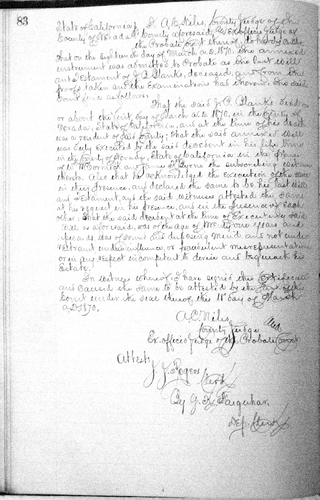 83
State of California } I, A.C. Niles, County Judge of the
County of Nevada } County aforesaid, Ex Officio Judge of
the Probate Court thereof, do hereby certify
that on the day of March A.D. 1870, the annexed
instrument was admitted to Probate as the last Will
and Testament of J.C. Planks, deceased, and from the
proofs taken and the Examinations had therein, the said
Court finds as follows:
That the said J.C. Planks died on
or about the first day of March A.D. 1870, in the County of
Nevada, State of California, and at the time of his death
was a resident of said County; that the said annexed Will
was duly executed by the said decedent in his life time
in the County of Nevada, State of California in the presence
of the subscribing witnesses
thereto. Also that he acknowledged the execution of the same
in their presence, and declared the same to be his last Will
and Testament, and the said witnesses attested the same
at his request in his presence, and in the presence of each
other. That the said decedent at the time of Executing said
Will as aforesaid, was of the age of Years and
upwards was of sound and disposing mind and not under
restraint undue influence, or fraudulent misrepresentation
or in any respect incompetent to devise and bequeath his
Estate.
In witness whereof I have signed this Certificate
and caused the same to be attested by the Clerk of the
Court under the seal thereof this 18th day of March
A.D. 1870.
A.C. Niles
County Judge and
Ex-officio Judge of the Probate Court
Attest:
Rogers
Clerk
By G. K. Farquhar
Dep. Clerk